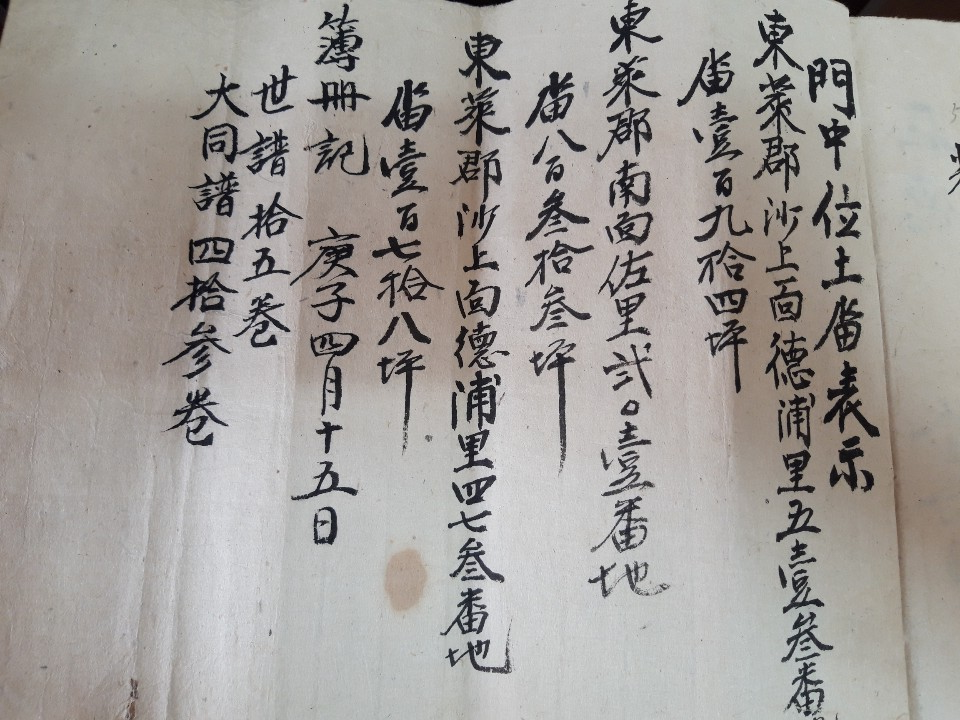 門中位土畓表示
東萊郡沙上面德浦里五壹叄番
畓壹百九拾四坪
東萊郡南面佐里弍〇壹番地
畓八百叄拾叄坪
東萊郡沙上面德浦里四七叄番地
畓壹百七拾八坪
簿冊記 庚子四月十五日
世譜拾五卷
大同譜四拾參卷